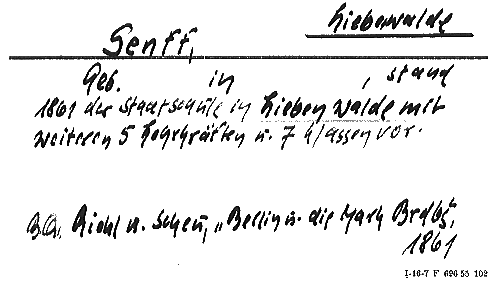 Liebenwalde
Senff,
Geb. in , stand
1861 der Stadtschule in Liebenwalde mit
weiteren 5 Lehrkräften u. 7 Klassen vor.
BQ. Riehl u. Scheu, „Berlin u. die Mark Brdbg",
1861
I-16-7 F 696 55 102